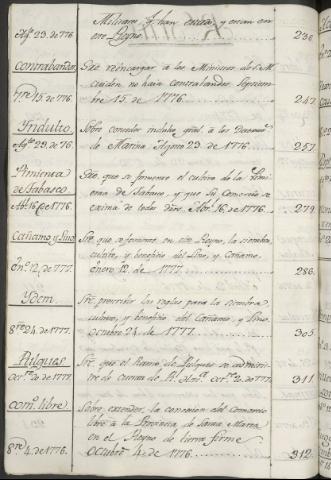 Milicias q.e han
en este Reyno 236
Ag.to 23. de 776.
Contrabandos
7.re 15. de 776.
Sre. encargar a los Ministros de S. M.
cuiden no haia contrabandos Septiem-
bre 15. de 1776. 247
Yndulto
Ag.to 29. de 76.
Sobre conceder indulto gral. a los
de Marina Agosto 29. de 1776. 257
Pimienta
de Tabasco
Ab.l 16. de 1776.
Sre. que se fomente el cultivo de la Pimi-
enta de Tabasco, y que su Comercio se
exima de todos dros. Abr.l 16. de 1776. 279
Cañamo y Lino
En.o 12. de 777.
Sre. que se fomente en este Reyno, la siembra,
cultivo, y beneficio del Lino, y Cañamo.
enero 12. de 1777. 286
Ydem
8.re 24. de 1777.
Sre. prescribir las reglas para la siembra
cultivo, y beneficio del Cañamo, y Lino.
Octubre 24. de 1777. 305
Pulques
Oct.re 20. de 1777.
Sre. que el Ramo de Pulques se adminis-
tre de Cuenta de R.l Oct.re 20. de 1777. 311
Com.o libre
8.re 4. de 1776.
Sobre extender la concesion del Comercio
libre a la Provincia de Santa Marta
en el Reyno de tierra firme
Octubre 4. de 1776. 312